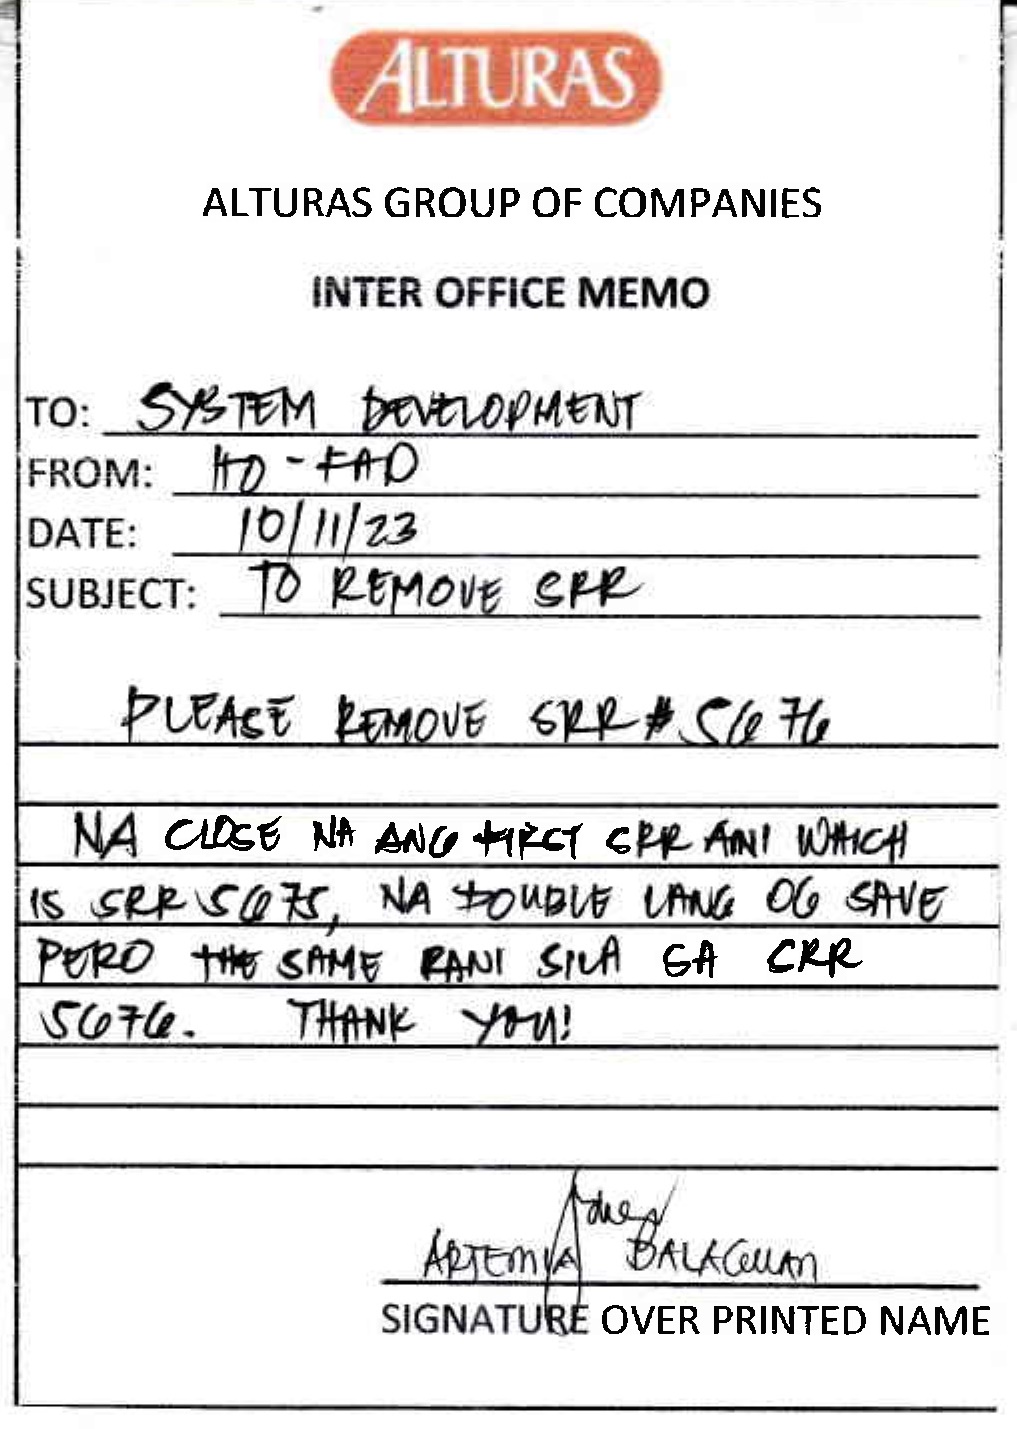 ALTURAS
ALTURAS GROUP OF COMPANIES
INTER OFFICE MEMO
TO: SYSTEM DEVELOPMENT
FROM: HO - FAD
DATE: 10/11/23
SUBJECT: TO REMOVE SRR
PLEASE REMOVE SRR # 5676
NA CLOSE NA ANG FIRST SRR ANI WHICH
IS SRR 5675, NA DOUBLE LANG OG SAVE
PERO THE SAME RANI SILA SA CRR
5676. THANK YOU!
ARTEMIA BALAGUAN
SIGNATURE OVER PRINTED NAME